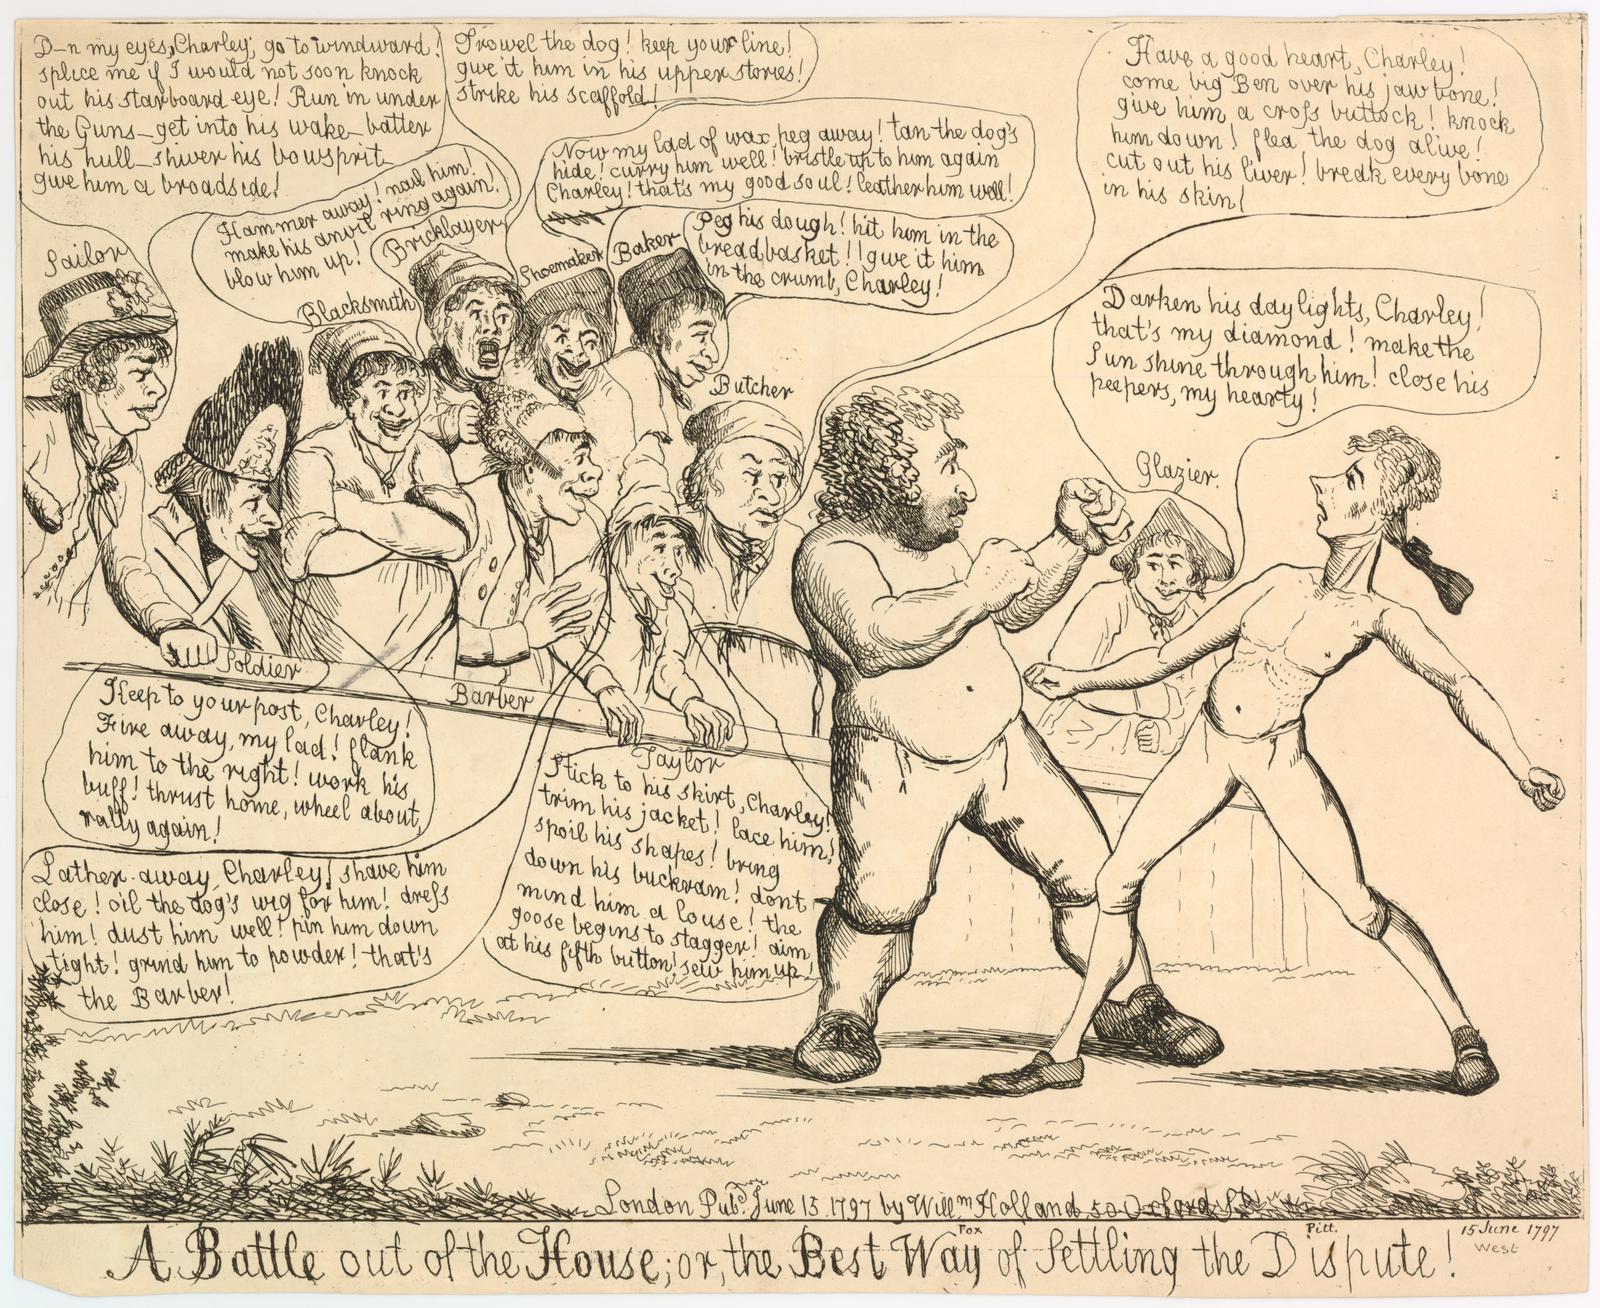 D–n my eyes, Charley, go to windward!
splice me if I would not soon knock
out his starboard eye! Run in under
the Guns–get into his wake–batter
his hull–shiver his bowsprit
give him a broadside!
Trowel the dog! keep your line!
give it him in his upper stories!
strike his scaffold!
Have a good heart, Charley!
come big Ben over his jaw bone!
give him a cross buttock! knock
him down! flea the dog alive!
cut out his liver! break every bone
in his skin!
Now my lad of wax, peg away! tan the dog's
hide! curry him well! bristle up to him again
Charley! that's my good soul! leather him well!
Hammer away! nail him!
make his anvil ring again!
blow him up!
Peg his dough! hit him in the
breadbasket!! give it him
in the crumb, Charley!
Sailor
Bricklayer
Shoemaker
Baker
Blacksmith
Butcher
Darken his day lights, Charley!
that's my diamond! make the
Sun shine through him! close his
peepers, my hearty!
Glazier.
Soldier
Barber
Keep to your post, Charley!
Fire away, my lad! flank
him to the right! work his
buff! thrust home, wheel about,
rally again!
Taylor
Stick to his skirt, Charley!
trim his jacket! lace him!
spoil his shapes! bring
down his buckram! dont
mind him a louse! the
goose begins to stagger! aim
at his fifth button! sew him up!
Lather away, Charley! shave him
close! oil the dog's wig for him! dress
him! dust him well! pin him down
tight! grind him to powder! that's
the Barber!
London Pubd June 15 1797 by Willm Holland 50 Oxford St
Fox
Pitt.
15 June 1797
West
A Battle out of the House; or, the Best Way of Settling the Dispute!